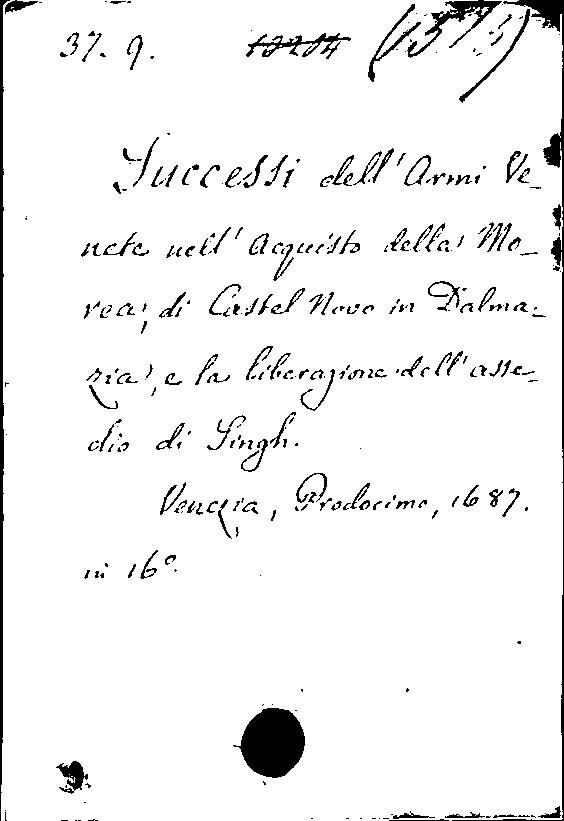 37. 9. 13204 (1575)
Successi dell' Armi Ve-
nete nell' Acquisto della Mo-
rea, di Castel Novo in Dalma-
zia, e la liberazione dell' asse-
dio di Singh.
Venezia, Prodocimo, 1687.
in 16º.